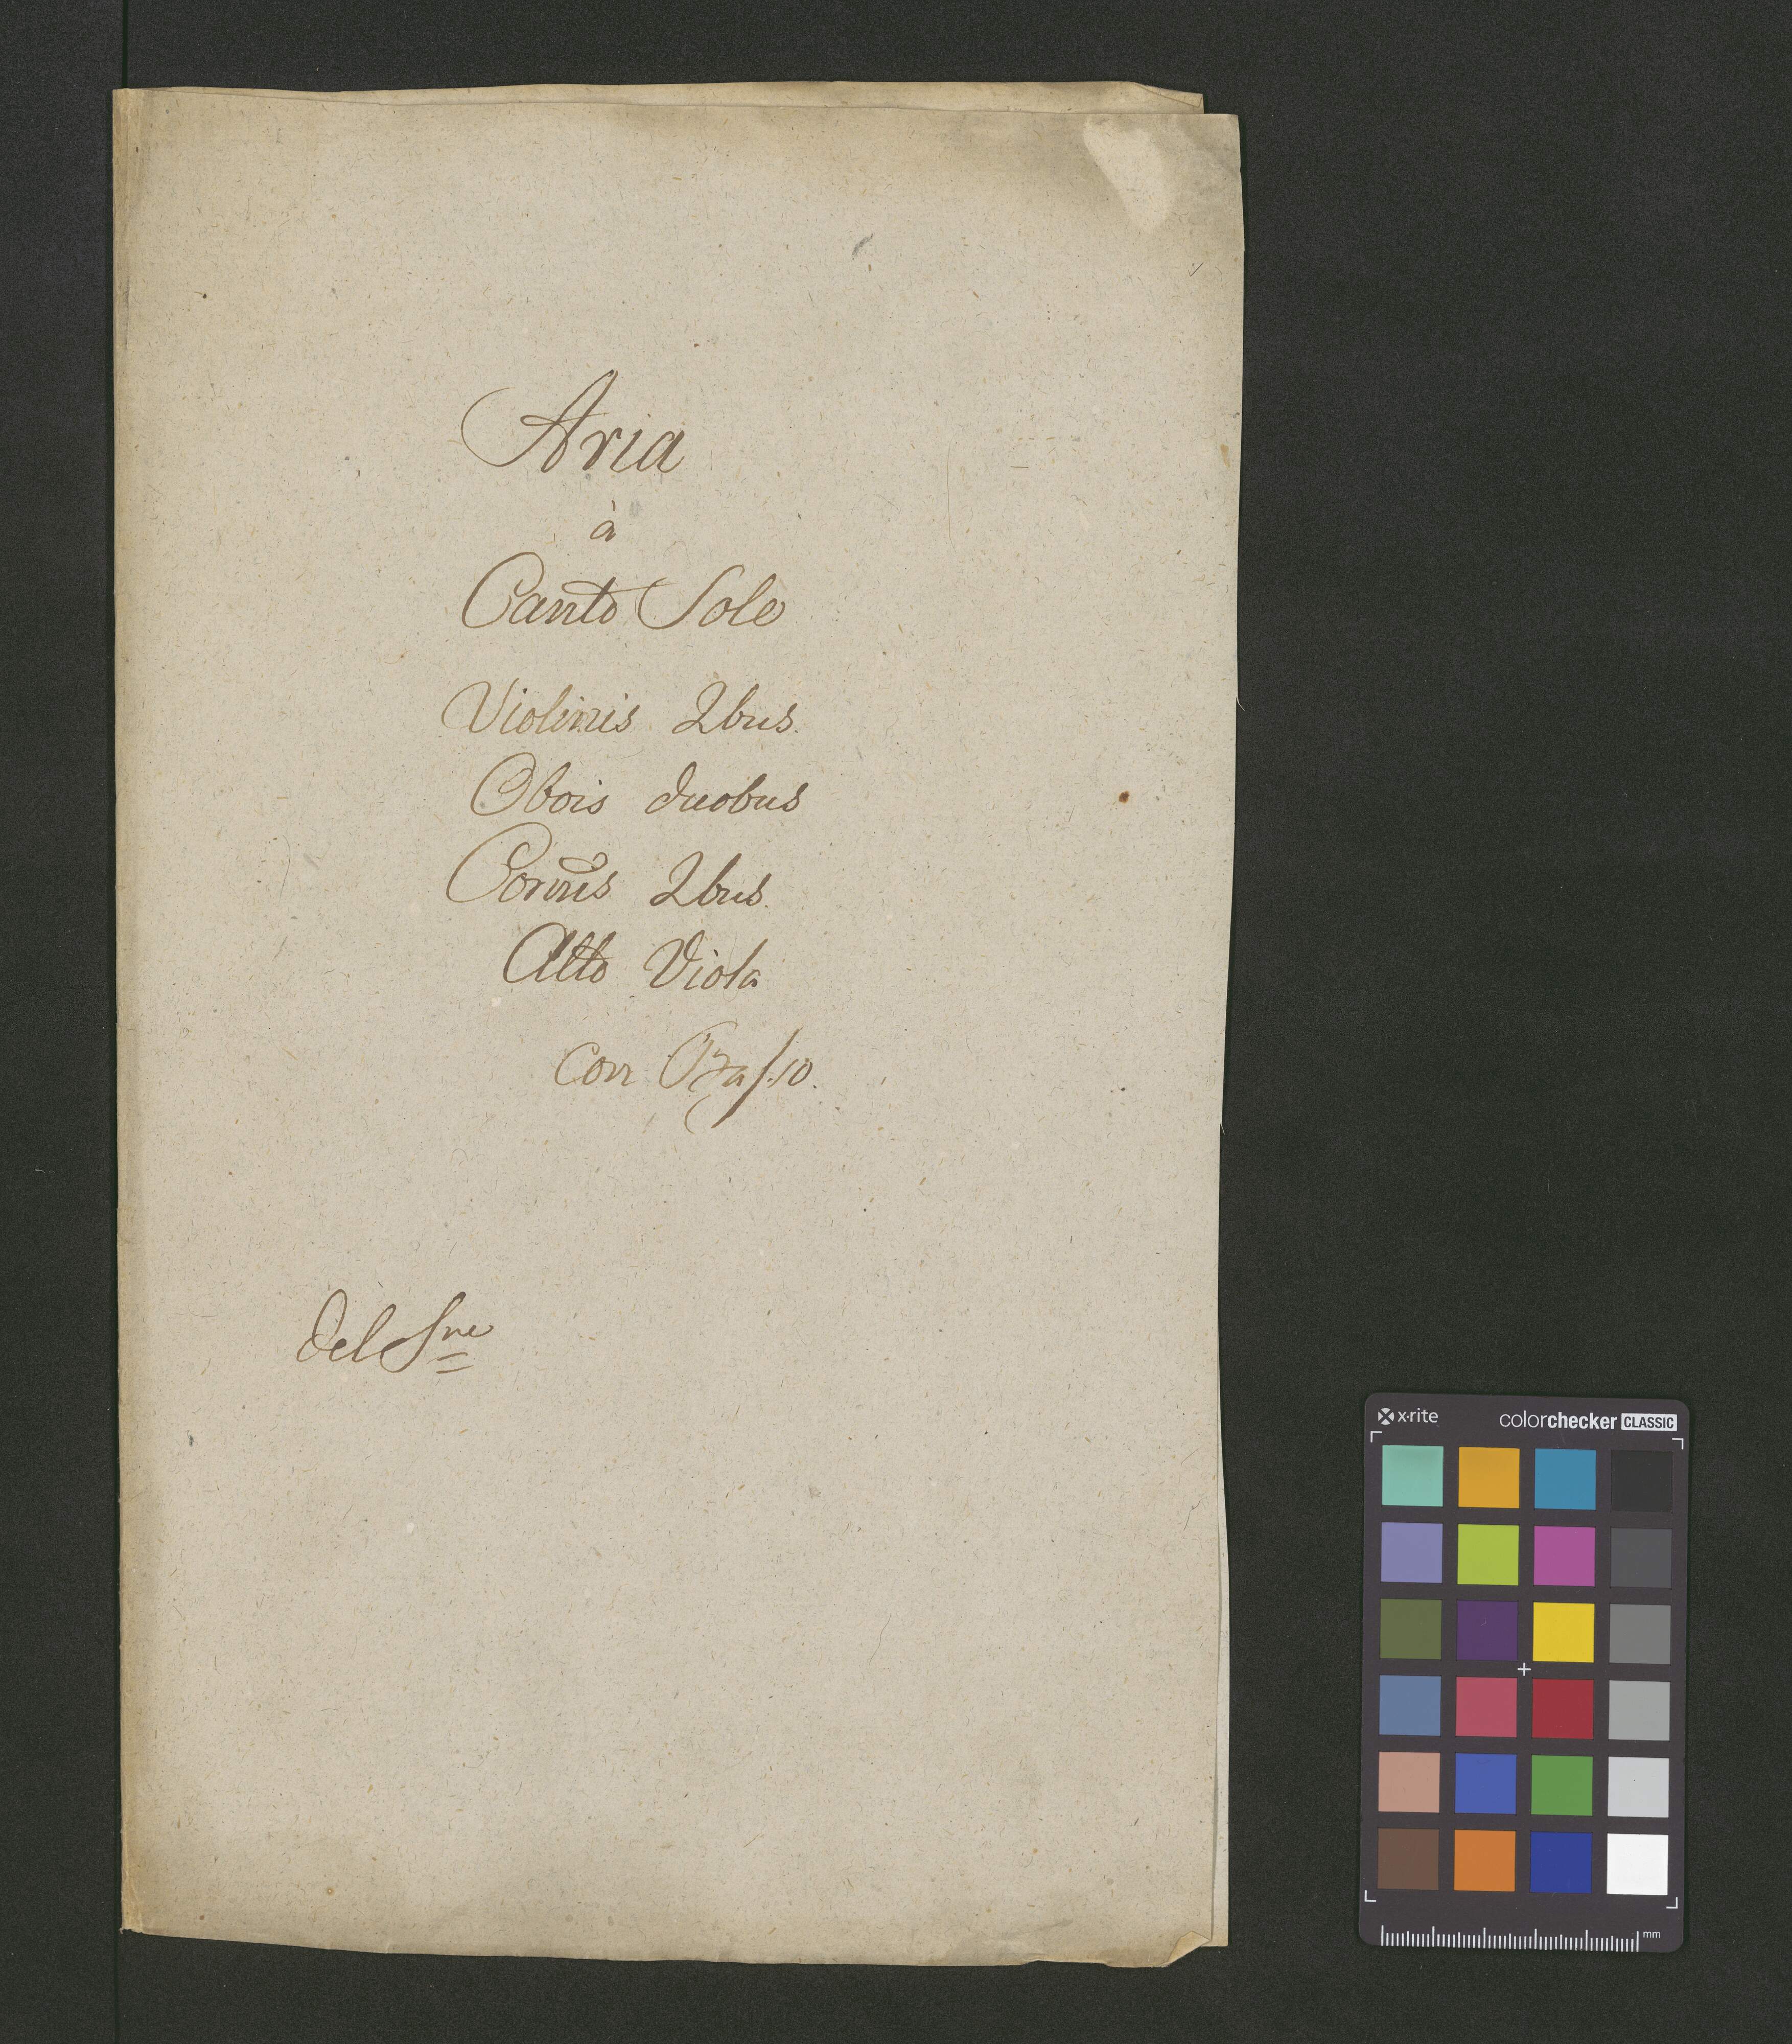 Aria
à
Canto Solo
Violinis 2bus.
Obois duobus
Cornis 2bus.
Alto Viola
Con Basso.
Del Sre
x·rite colorchecker CLASSIC
mm